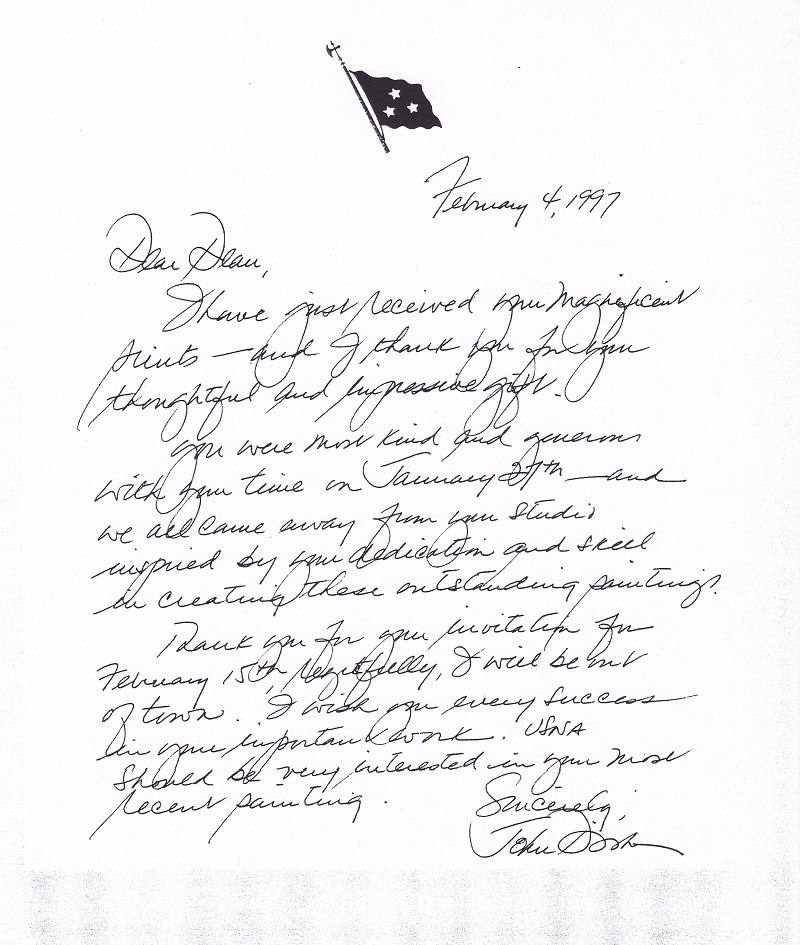 February 4, 1997
Dear Dean,
I have just received your magnificent
prints — and I thank you for your
thoughtful and impressive gift.
You were most kind and generous
with your time on January 27th — and
we all came away from your studio
inspired by your dedication and skill
in creating these outstanding paintings.
Thank you for your invitation for
February 15th, regretfully, I will be out
of town. I wish you every success
in your important work. USNA
should be very interested in your most
recent painting.
Sincerely,
John